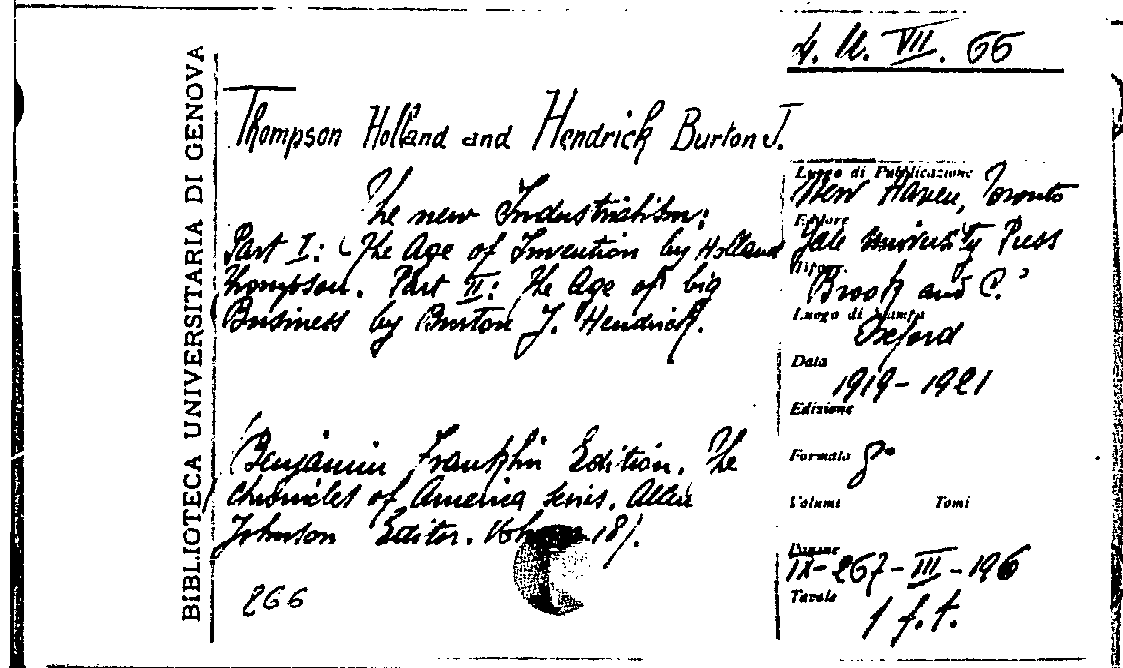 BIBLIOTECA UNIVERSITARIA DI GENOVA
4. U. VII. 66
Thompson Holland and Hendrick Burton J.
The new Industrialism:
Part I: The Age of Invention by Holland
Thompson. Part II: The Age of big
Business by Burton J. Hendrick.
(Benjamin Franklin Edition. The
chronicles of America series. Allen
Johnson Editor. Volume 18).
266
Luogo di Pubblicazione
New Haven, Toronto
Editore
Yale University Press
Tipogr.
Brook and C.°
Luogo di Stampa
Oxford
Data
1919-1921
Edizione
Formato 8°
Volumi Tomi
Pagine
IX-267-III-196
Tavole
1 f.t.